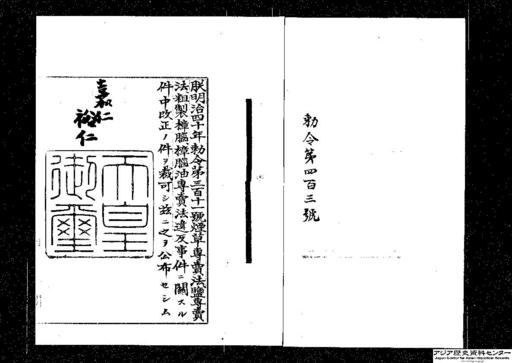 勅令第四百三號
朕明治四十年勅令第三百十一號煙草專賣法鹽專賣
法粗製樟腦樟腦油專賣法違反事件ニ關スル
件中改正ノ件ヲ裁可シ玆ニ之ヲ公布セシム
嘉仁
裕仁
天皇御璽
アジア歴史資料センター
Japan Center for Asian Historical Records